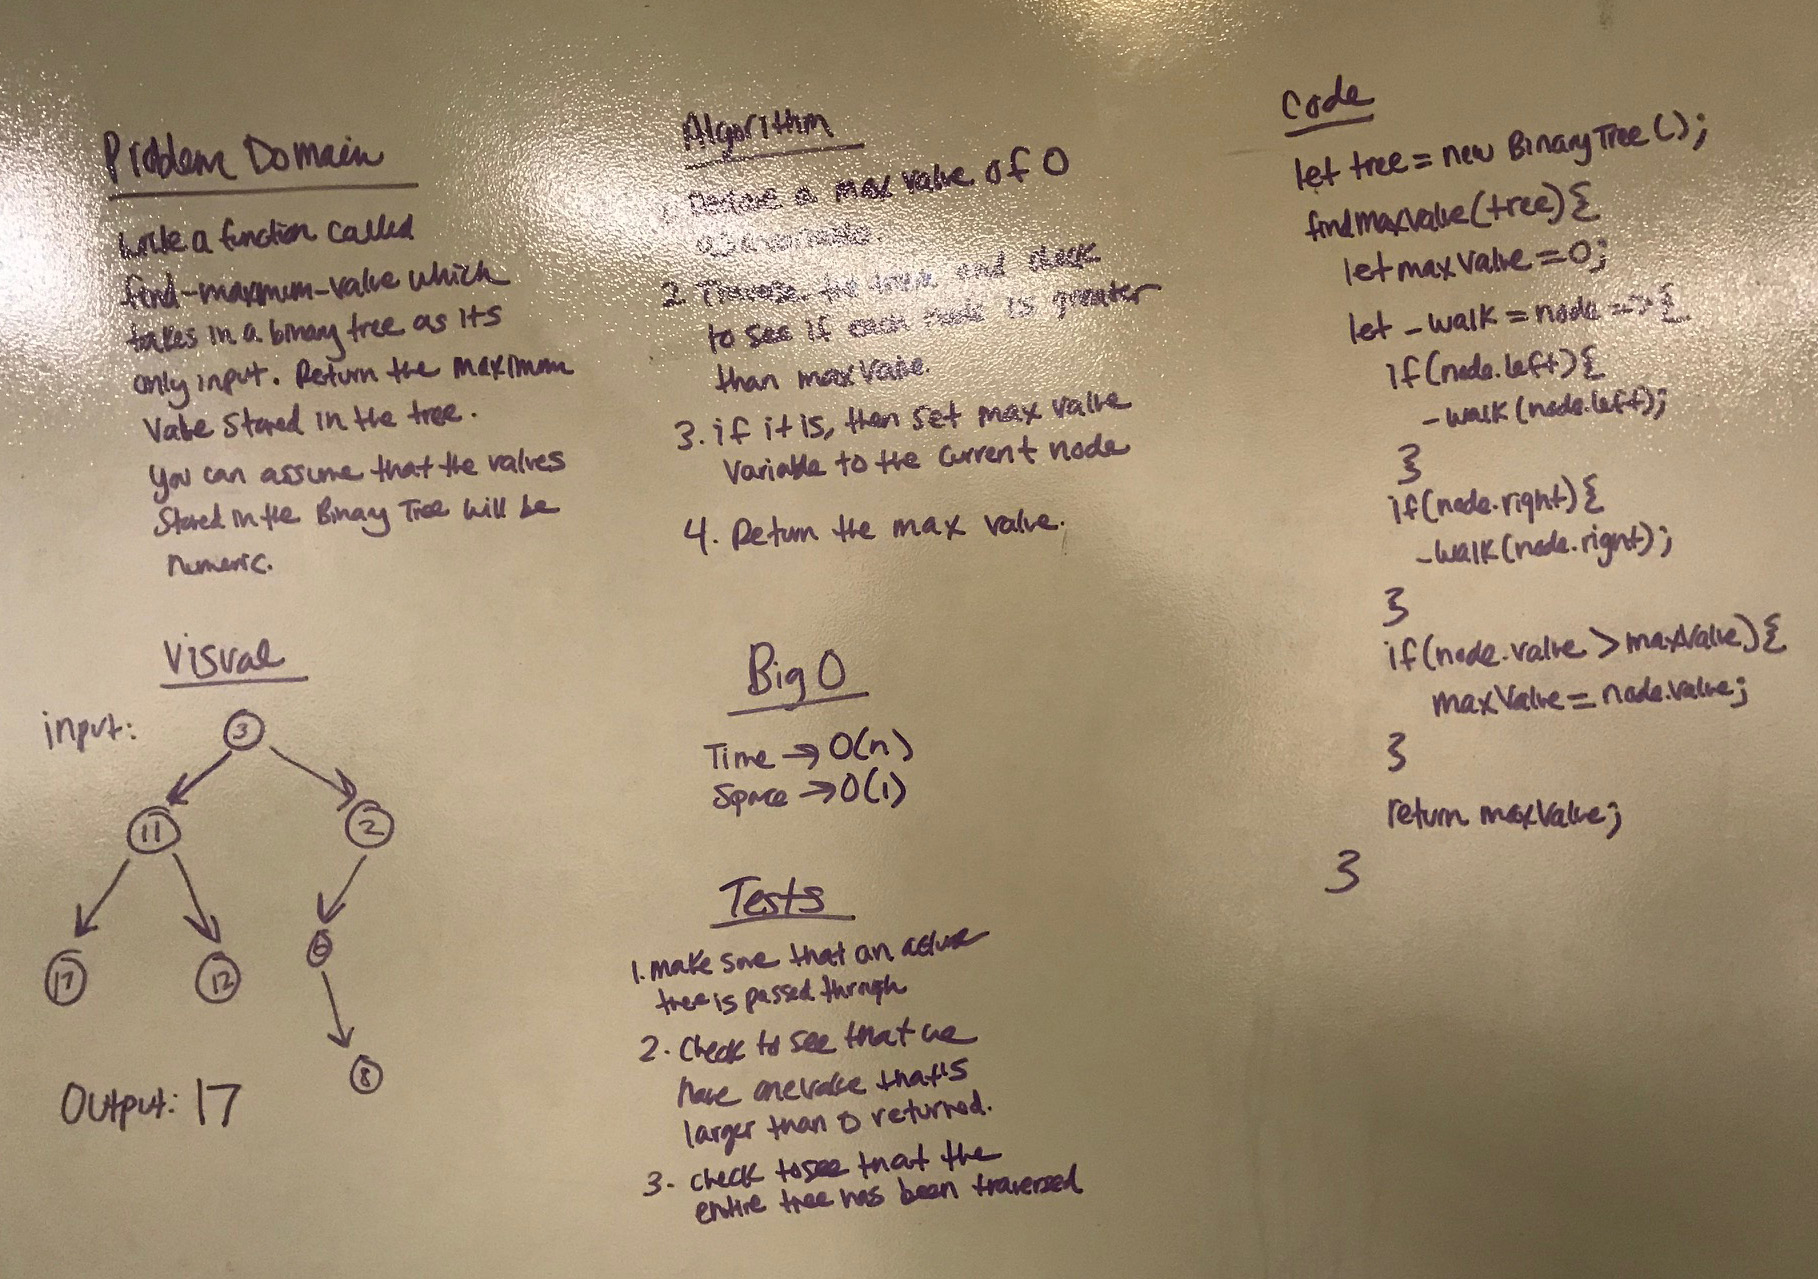 Problem Domain
write a function called
find-maximum-value which
takes in a binary tree as its
only input. Return the maximum
Value Stored in the tree.
You can assume that the values
Stored in the Binary Tree will be
numeric.
Visual
input:
3
11
2
17
12
6
8
Output: 17
Algorithm
1. Declare a max value of 0
as a variable.
2. Traverse the tree and check
to see if each node is greater
than max value.
3. if it is, then set max value
variable to the current node
4. Return the max value.
Big O
Time → O(n)
Space → O(1)
Tests
1. make sure that an actual
tree is passed through
2. check to see that we
have one value that's
larger than 0 returned.
3. check to see that the
entire tree has been traversed
Code
let tree = new BinaryTree();
findMaxValue(tree){
let maxValue = 0;
let _walk = node => {
if(node.left){
_walk(node.left);
}
if(node.right){
_walk(node.right);
}
if(node.value > maxValue){
maxValue = node.value;
}
return maxValue;
}